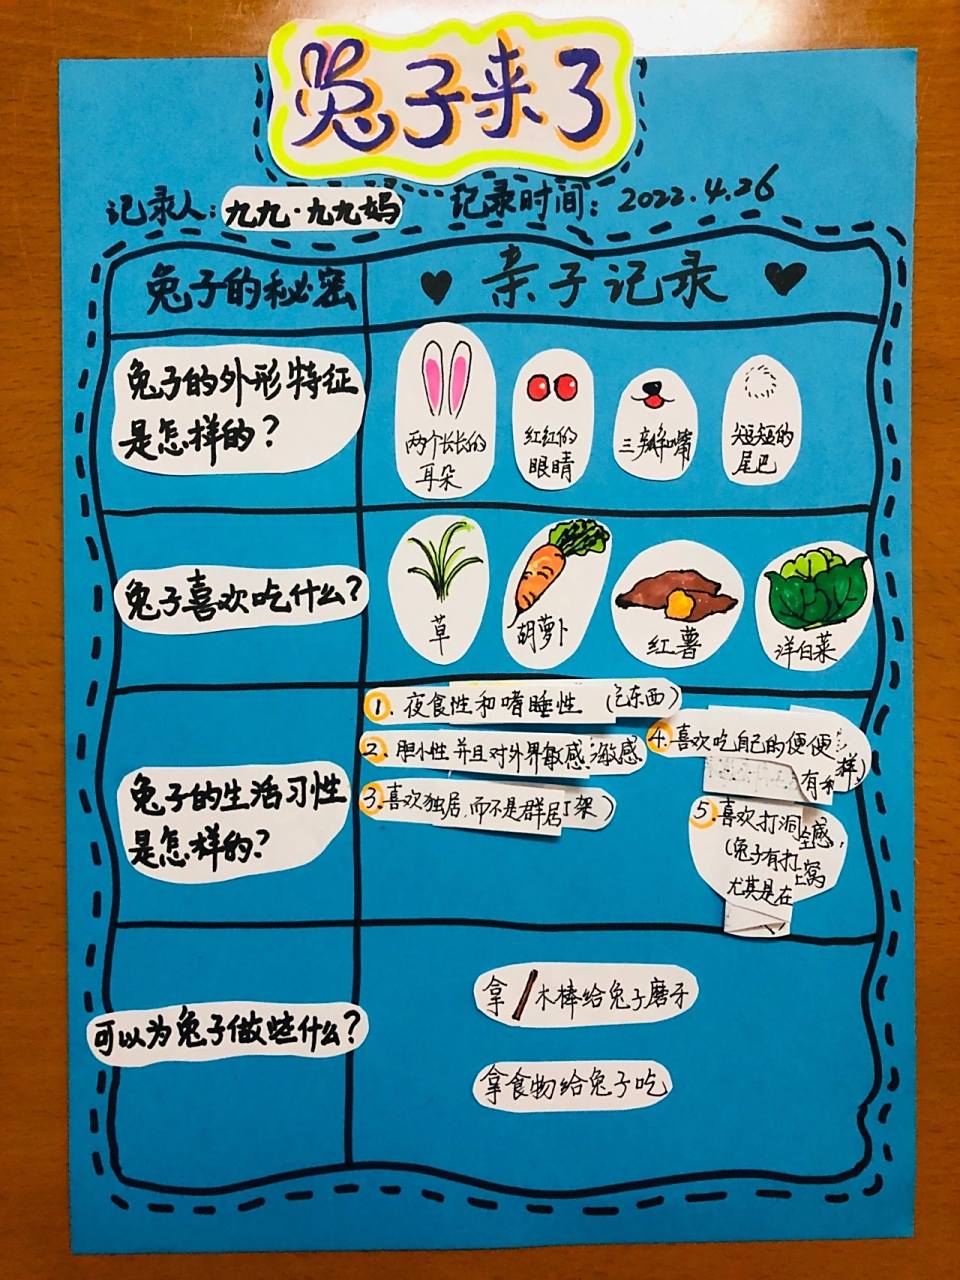 兔子来了
记录人：九九·九九妈 记录时间：2022.4.26
兔子的秘密
♥ 亲子记录 ♥
兔子的外形特征
是怎样的？
两个长长的
耳朵
红红的
眼睛
三瓣嘴
短短的
尾巴
兔子喜欢吃什么？
草
胡萝卜
红薯
洋白菜
兔子的生活习性
是怎样的？
1. 夜食性和嗜睡性 东西）
2. 胆小性并且对外界敏感 敏感
3. 喜欢独居，而不是群居 架）
4. 喜欢吃自己的便便
有 样）
5. 喜欢打洞 感，
（兔子有打 窝
尤其是在
可以为兔子做些什么？
拿 木棒给兔子磨牙
拿食物给兔子吃